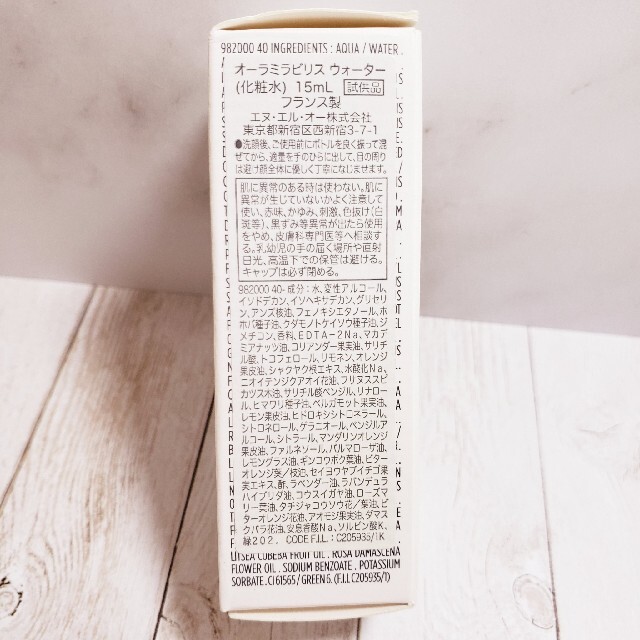 982000 40 INGREDIENTS : AQUA / WATER .
オーラミラビリス ウォーター
(化粧水) 15mL 試供品
フランス製
エヌ・エル・オー株式会社
東京都新宿区西新宿3-7-1
●洗顔後、ご使用前にボトルを良く振って混
ぜてから、適量を手のひらに出して、目の周り
は避け顔全体に優しく丁寧になじませます。
肌に異常のある時は使わない。肌に
異常が生じていないかよく注意して
使い、赤味、かゆみ、刺激、色抜け(白
斑等)、黒ずみ等異常が出たら使用
をやめ、皮膚科専門医等へ相談す
る。乳幼児の手の届く場所や直射
日光、高温下での保管は避ける。
キャップは必ず閉める。
982000 40- 成分 : 水、変性アルコール、
イソドデカン、イソヘキサデカン、グリセリ
ン、アンズ核油、フェノキシエタノール、ホ
ホバ種子油、クダモノトケイソウ種子油、ジ
メチコン、香料、EDTA-2Na、マカデ
ミアナッツ油、コリアンダー果実油、サリチ
ル酸、トコフェロール、リモネン、オレンジ
果皮油、シャクヤク根エキス、水酸化Na、
ニオイテンジクアオイ花油、フリヌススピ
カツズ木油、サリチル酸ベンジル、リナロー
ル、ヒマワリ種子油、ベルガモット果実油、
レモン果皮油、ヒドロキシシトロネラール、
シトロネロール、ゲラニオール、ベンジルア
ルコール、シトラール、マンダリンオレンジ
果皮油、ファルネソール、パルマローザ油、
レモングラス油、ギンコウボク葉油、ビター
オレンジ葉/枝油、セイヨウヤブイチゴ果
実エキス、酢、ラベンダー油、ラバンデュラ
ハイブリダ油、コウスイガヤ油、ローズマ
リー葉油、タチジャコウソウ花/葉油、ビ
ターオレンジ花油、アオモジ果実油、ダマス
クバラ花油、安息香酸Na、ソルビン酸K、
緑202. CODE F.I.L. : C205935/1K
LITSEA CUBEBA FRUIT OIL . ROSA DAMASCENA
FLOWER OIL . SODIUM BENZOATE . POTASSIUM
SORBATE . CI 61565 / GREEN 6. (F.I.L C205935/1)